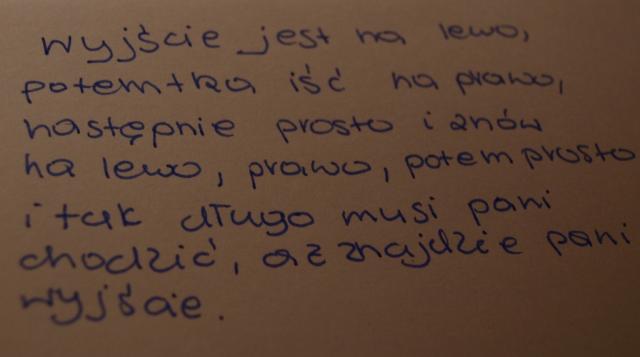 wyjście jest na lewo,
potem tka iść na prawo,
następnie prosto i znów
na lewo, prawo, potem prosto
i tak długo musi pani
chodzić, aż znajdzie pani
wyjście.